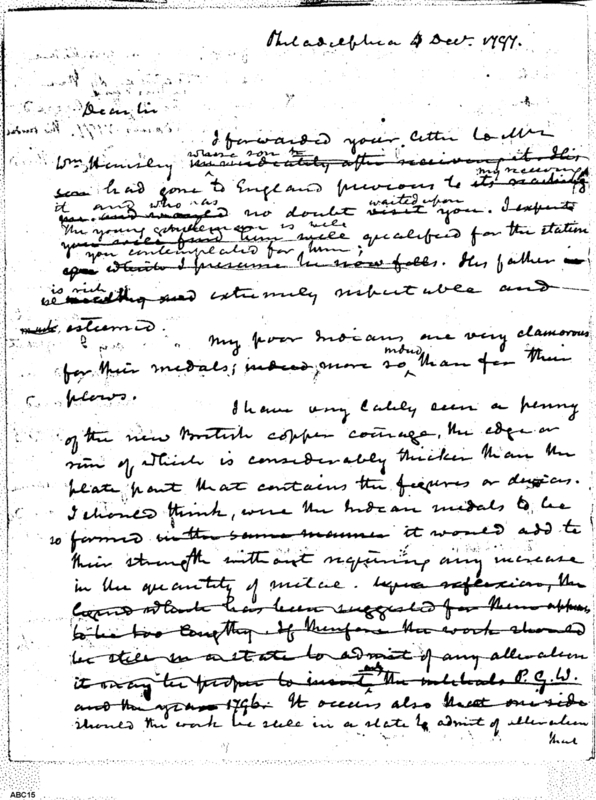 Philadelphia 4 Decr. 1797.
Dear Sir
I forwarded your letter to Mr
whose son to
Wm Hemsley immediately after receiving it. His
my receiving
son had gone to England previous to its reaching
it and who has waited upon
and no doubt visit you. I expect
the young gentleman is well
you will find him well qualified for the station
you contemplated for him;
which I presume he now fills. His father is
is rich
wealthy and extremely respectable and
much esteemed.
My poor Indians are very clamorous
indeed
for their medals; indeed, more so, than for their
plows.
I have very lately seen a penny
of the new British copper coinage, the edge or
rim of which is considerably thicker than the
plate part that contains the figures or devices.
I should think, were the Indian medals to be
20 formed in the same manner it would add to
their strength without requiring any increase
in the quantity of metal. Upon reflexion, the
legend which has been suggested for them appears
to be too lengthy. If therefore the work should
be still in a state to admit of any alteration
only
it may be proper to insert the initials P. G. W.
and the year 1796. It occurs also that one side
should the work be still in a state to admit of alteration
that
ABC15